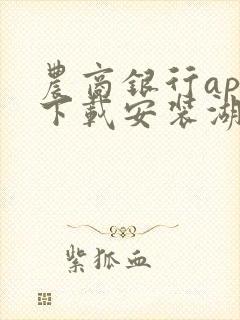 農商銀行ap
下載安装湖
紫狐血